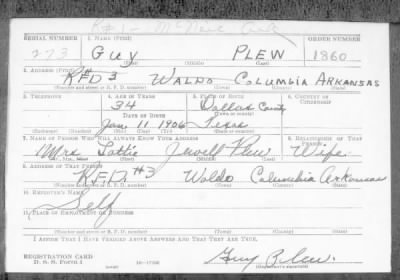 SERIAL NUMBER 1. NAME (Print) ORDER NUMBER
273 GUY PLEW 1860
2. ADDRESS (Print)
RFD 3 WALDO COLUMBIA ARKANSAS
(Number and street or R. F. D. number) (Town) (County) (State)
3. TELEPHONE 4. AGE IN YEARS 5. PLACE OF BIRTH 6. COUNTRY OF CITIZENSHIP
34 Dallas County
DATE OF BIRTH (Town or county)
Jan. 11 1906 Texas
(Exchange) (Number) (Mo.) (Day) (Yr.) (State or country)
7. NAME OF PERSON WHO WILL ALWAYS KNOW YOUR ADDRESS 8. RELATIONSHIP OF THAT PERSON
Mrs Lottie Jewell Plew Wife
(Mr., Mrs., Miss) (First) (Middle) (Last)
9. ADDRESS OF THAT PERSON
RFD #3 Waldo Columbia Arkansas
(Number and street or R. F. D. number) (Town) (County) (State)
10. EMPLOYER'S NAME
Self
11. PLACE OF EMPLOYMENT OR BUSINESS
(Number and street or R. F. D. number) (Town) (County) (State)
I AFFIRM THAT I HAVE VERIFIED ABOVE ANSWERS AND THAT THEY ARE TRUE.
REGISTRATION CARD
D. S. S. Form 1 16-17105 Guy Plew
(Registrant's signature)